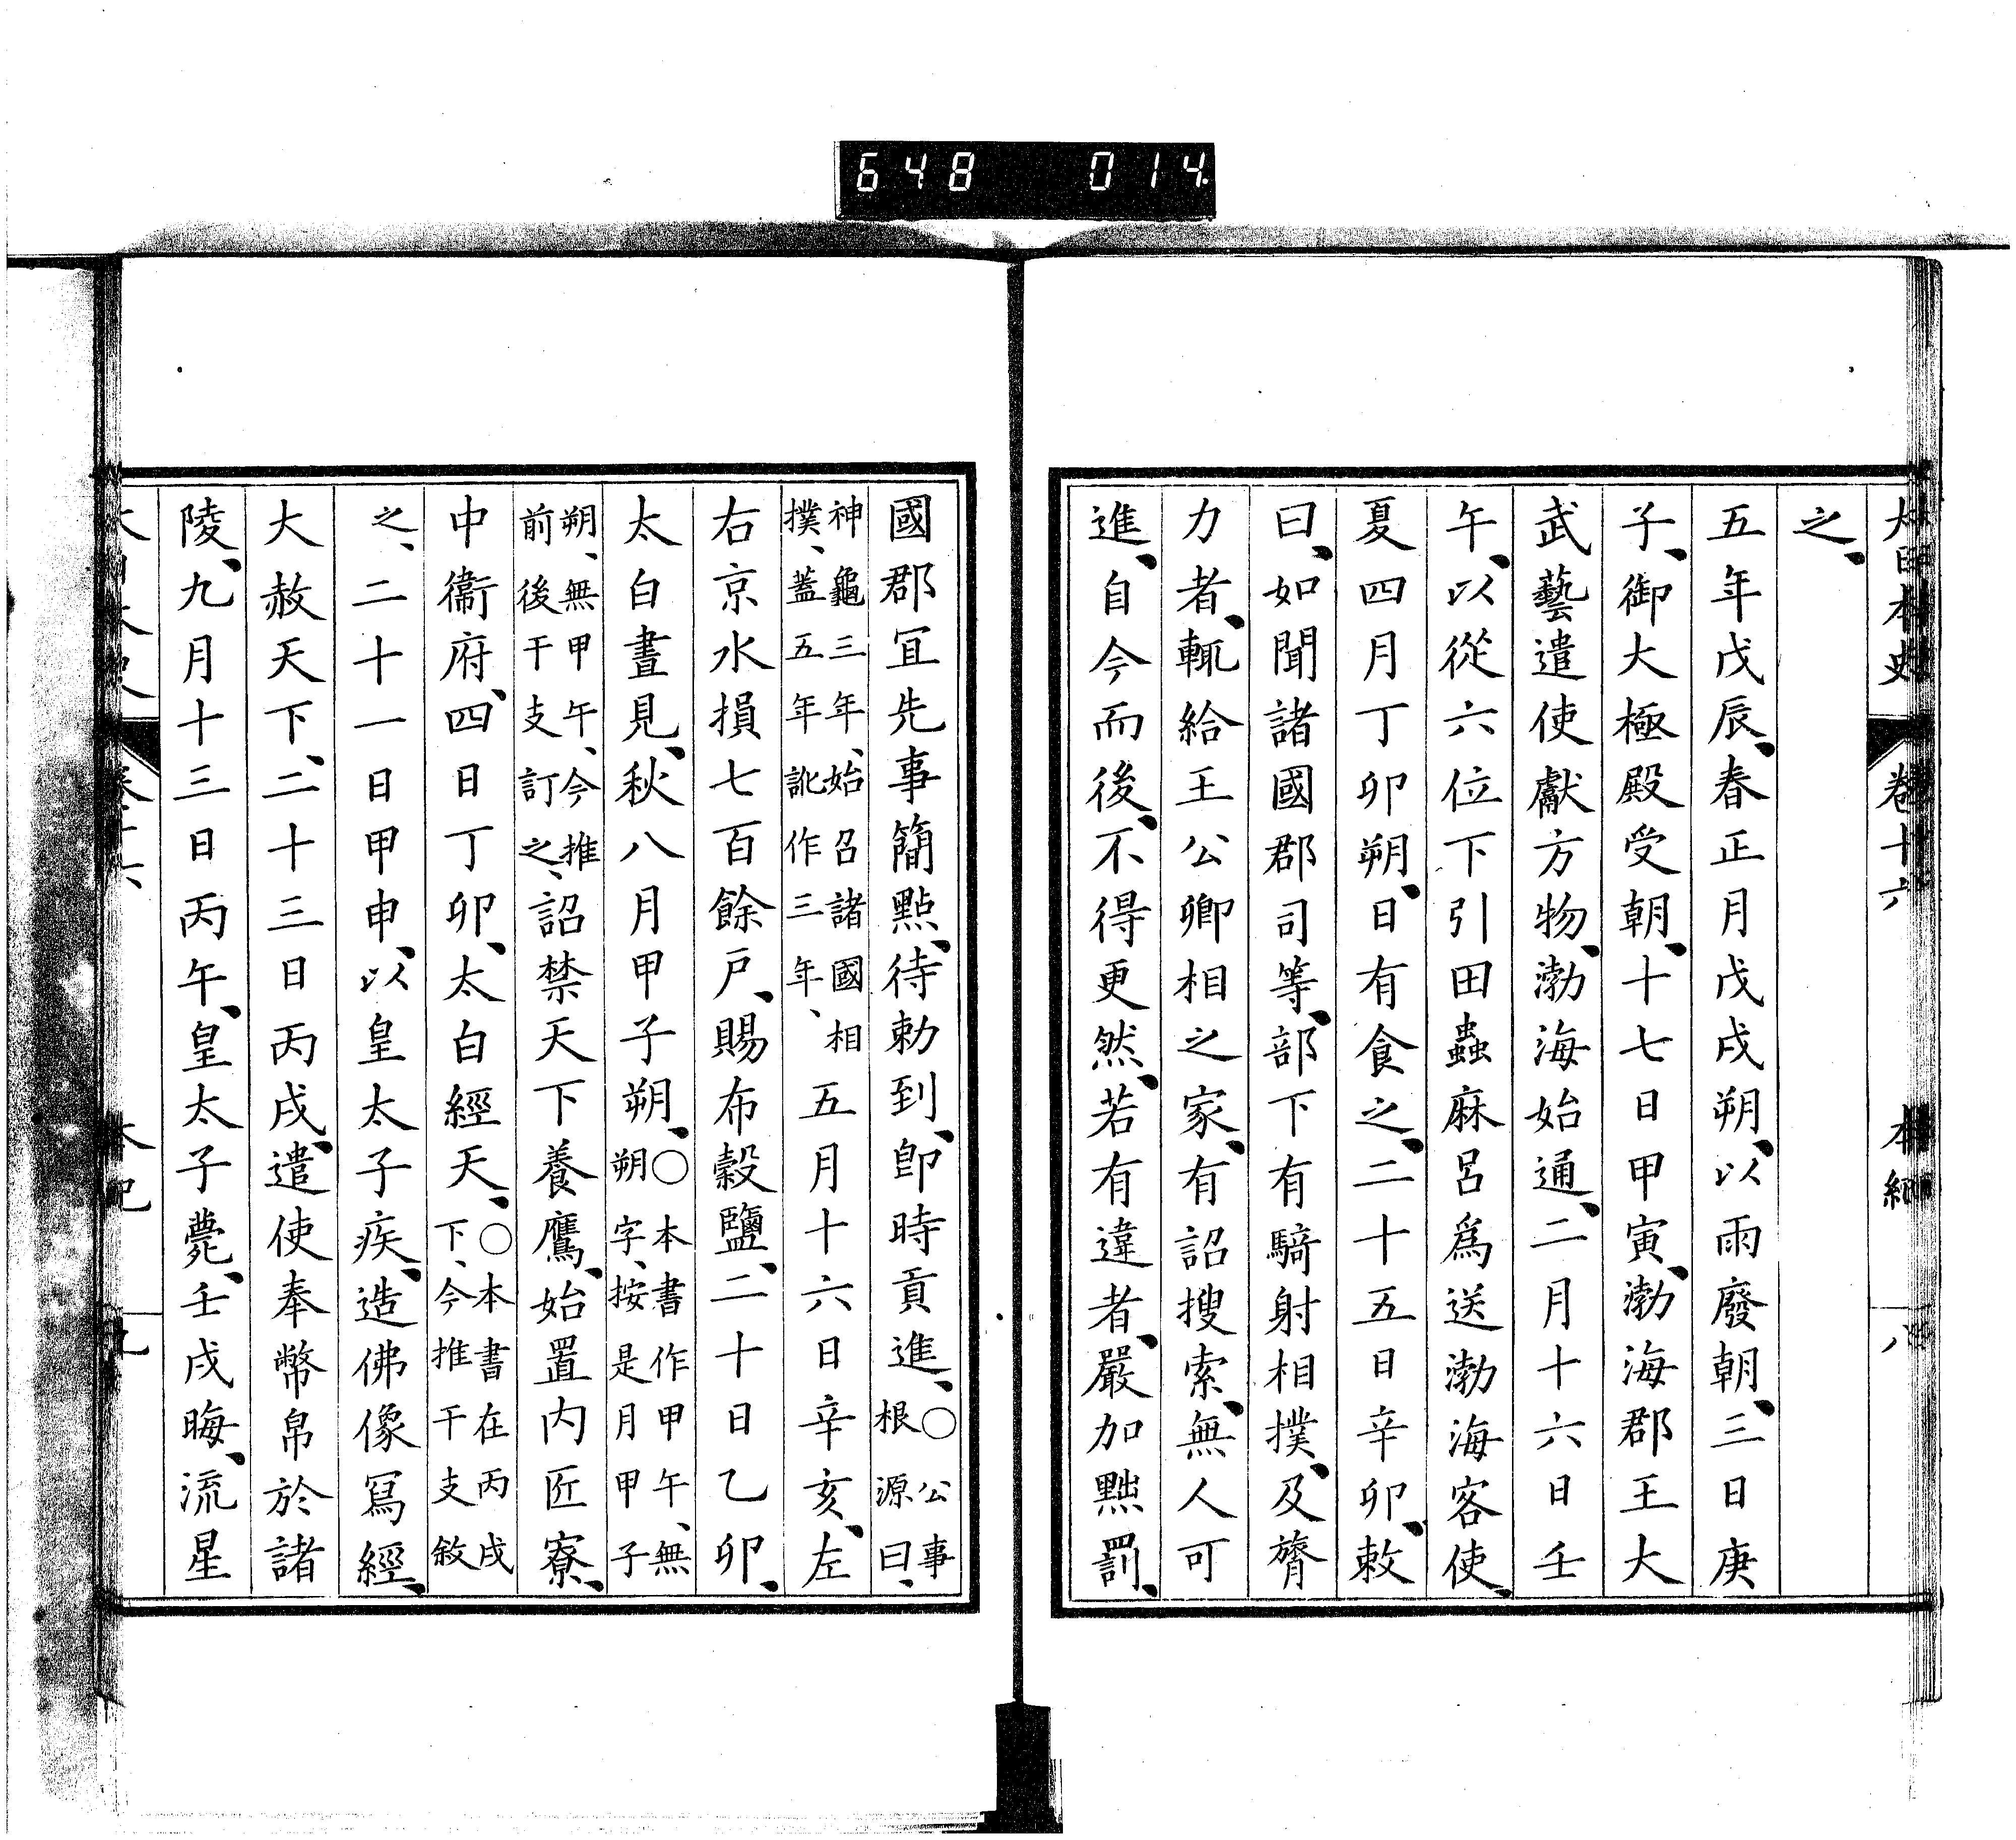 648 014
大日本史 卷十六 本紀 八
之、
五年戊辰、春正月戊戌朔、以雨廢朝、三日庚
子、御大極殿受朝、十七日甲寅、渤海郡王大
武藝遣使獻方物、渤海始通、二月十六日壬
午、以從六位下引田蟲麻呂爲送渤海客使、
夏四月丁卯朔、日有食之、二十五日辛卯、敕
曰、如聞諸國郡司等、部下有騎射相撲、及膂
力者、輒給王公卿相之家、有詔搜索、無人可
進、自今而後、不得更然、若有違者、嚴加黜罰、
國郡宜先事簡點、待勅到、卽時貢進、○公事根源曰、
神龜三年、始召諸國相撲、蓋五年訛作三年、五月十六日辛亥、左
右京水損七百餘戶、賜布穀鹽、二十日乙卯、
太白晝見、秋八月甲子朔、○本書作甲午、無朔字、按是月甲子
朔、無甲午、今推前後干支訂之、詔禁天下養鷹、始置內匠寮、
中衞府、四日丁卯、太白經天、○本書在丙戌下、今推干支敘
之、二十一日甲申、以皇太子疾、造佛像寫經、
大赦天下、二十三日丙戌、遣使奉幣帛於諸
陵、九月十三日丙午、皇太子薨、壬戌晦、流星